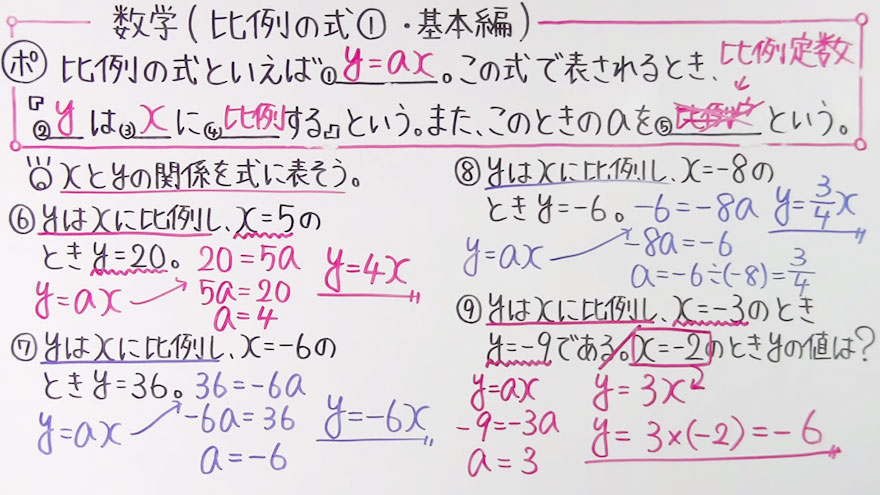 数学(比例の式①・基本編)
ポ 比例の式といえば①y=ax。この式で表されるとき、比例定数
『②yは③xに④比例する』という。また、このときのaを⑤という。
xとyの関係を式に表そう。
⑥yはxに比例し、x=5の
ときy=20。 20=5a y=4x
y=ax 5a=20
a=4
⑦yはxに比例し、x=-6の
ときy=36。 36=-6a
y=ax -6a=36 y=-6x
a=-6
⑧yはxに比例し、x=-8の
ときy=-6。 -6=-8a y=3/4x
y=ax -8a=-6
a=-6÷(-8)=3/4
⑨yはxに比例し、x=-3のとき
y=-9である。x=-2のときyの値は?
y=ax y=3x
-9=-3a y=3×(-2)=-6
a=3